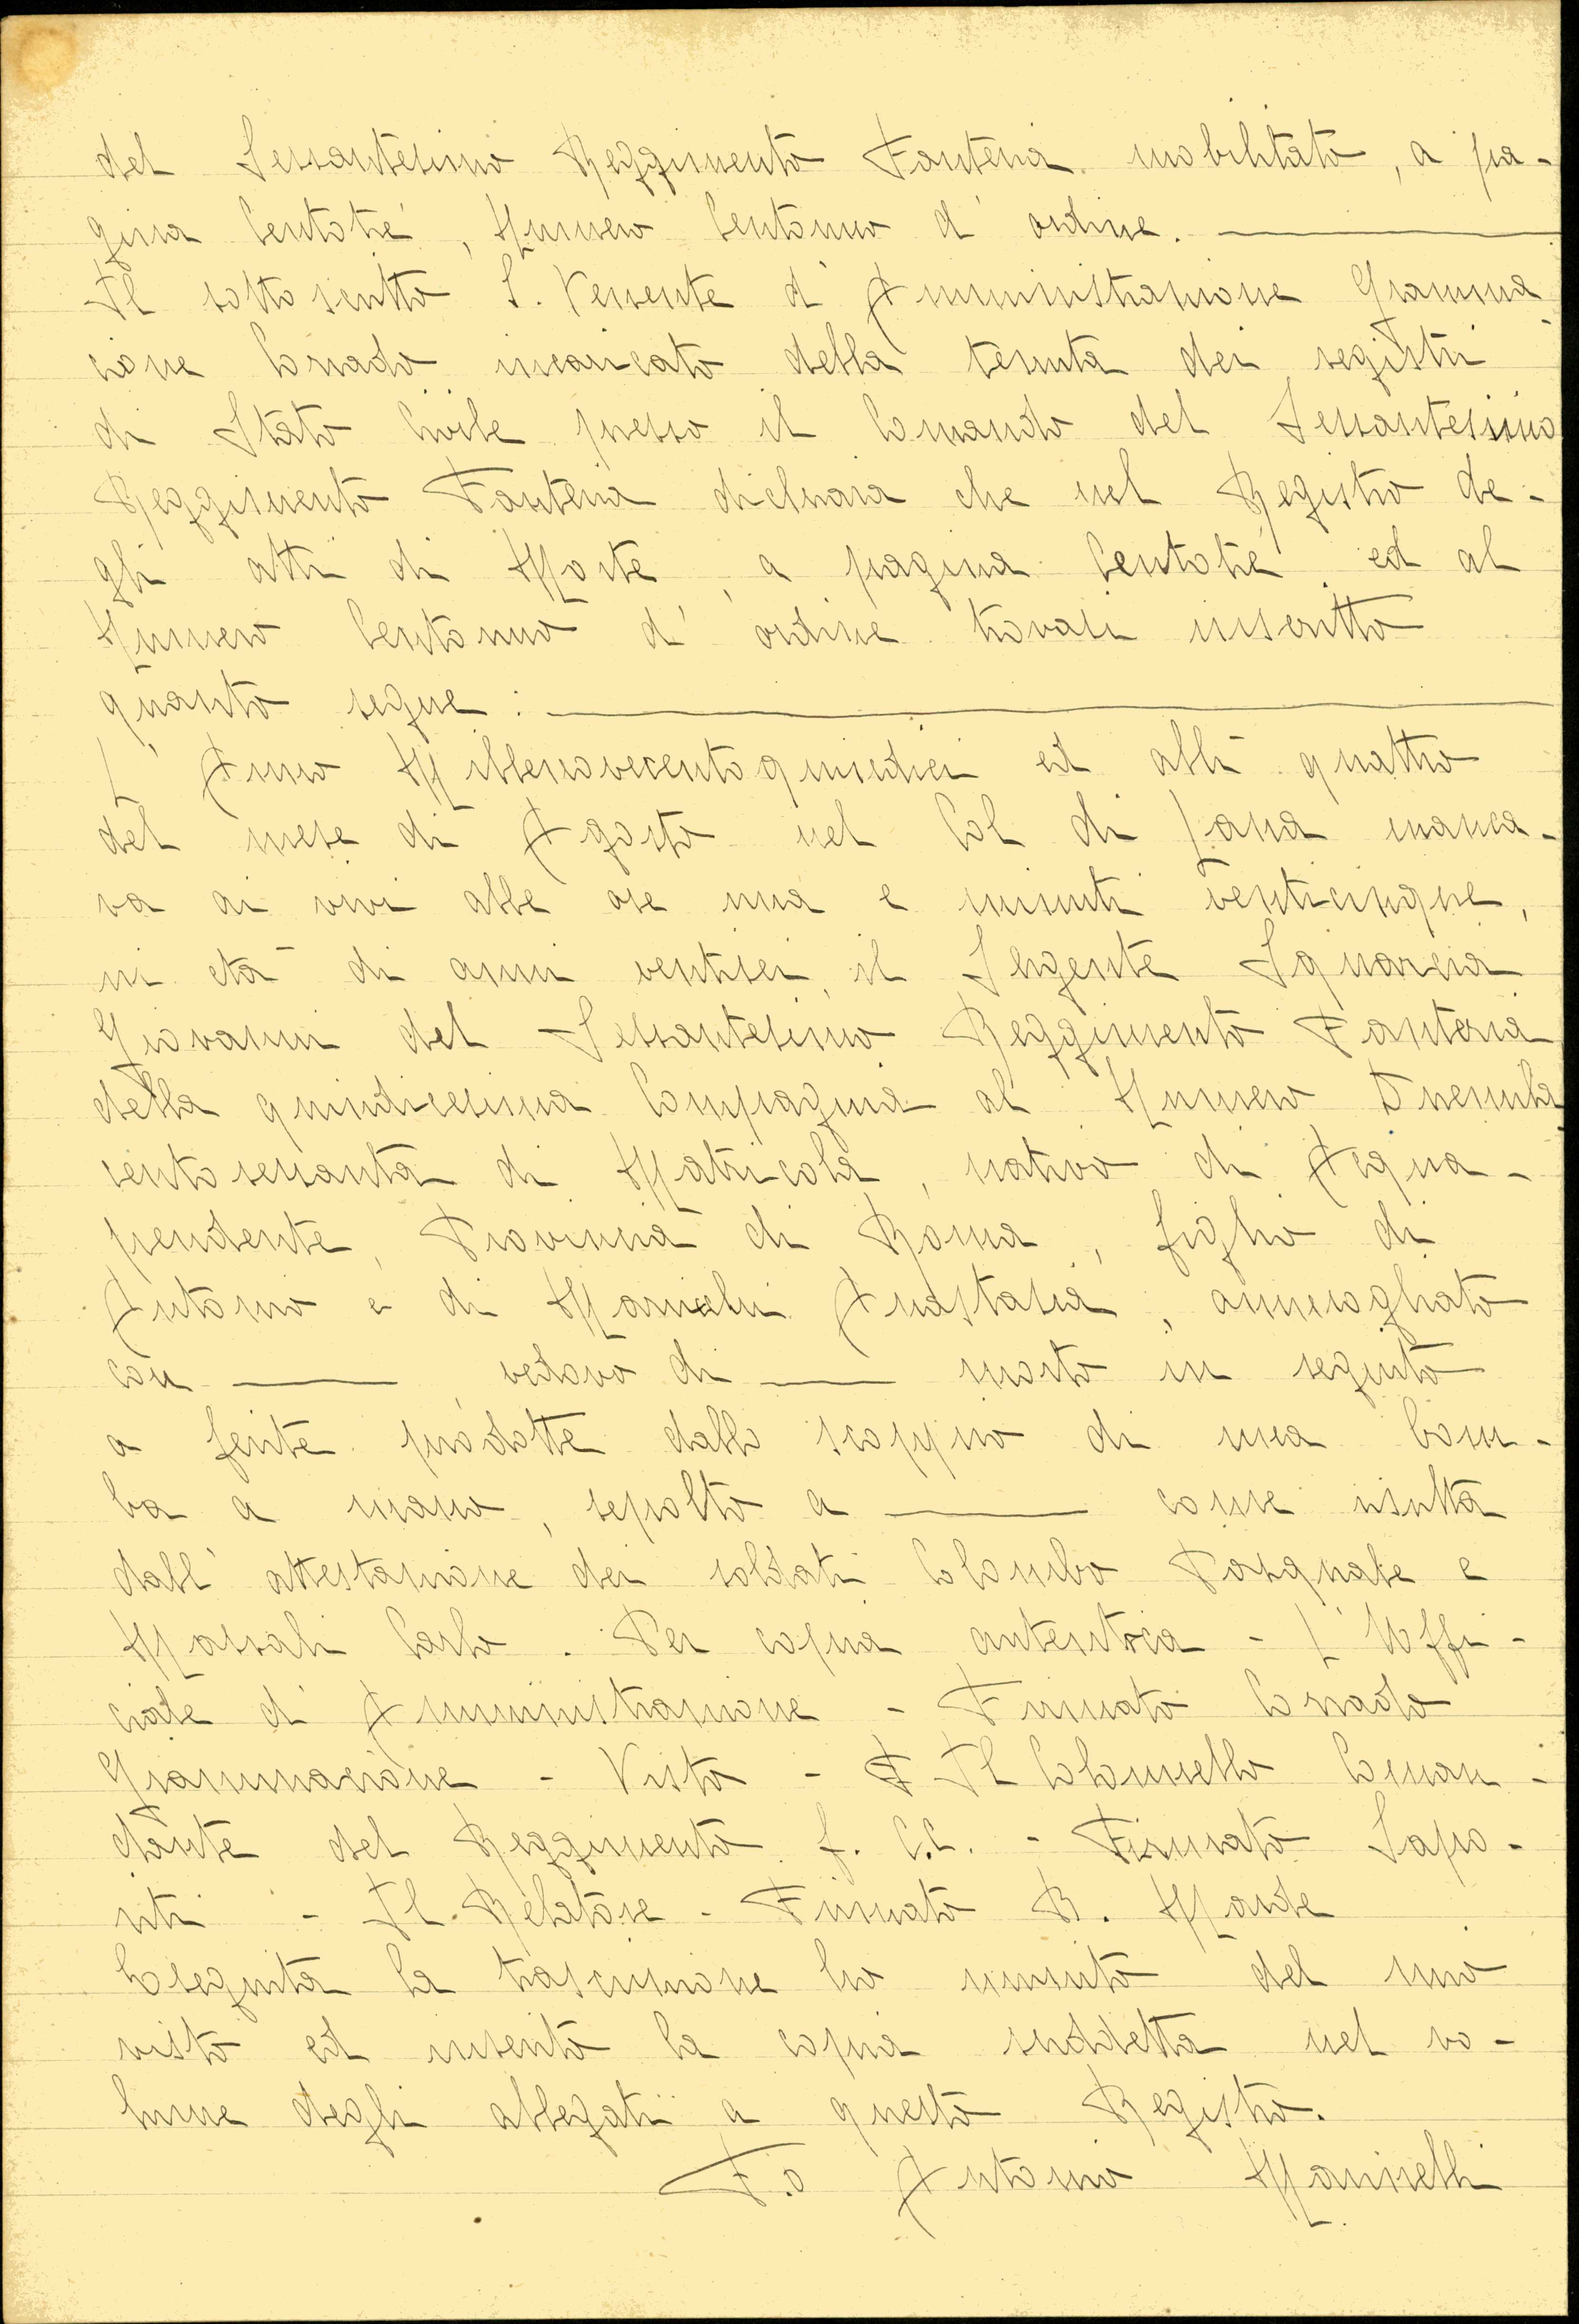 del Sessantesimo Reggimento Fanteria mobilitato, a pa-
gina Centotré, Numero Centouno d'ordine.
Il sottoscritto S. Tenente d'Amministrazione Giamma
cione Corrado incaricato della tenuta dei registri
di Stato Civile presso il Comando del Sessantesimo
Reggimento Fanteria dichiara che nel Registro de-
gli atti di Morte, a pagina Centotré ed al
Numero Centouno d'ordine trovasi inscritto
quanto segue:
L'Anno Millenovecentoquindici ed alli quattro
del mese di Agosto nel Col di Lana manca-
va ai vivi alle ore una e minuti venticinque,
in età di anni ventisei, il Sergente Squarcia
Giovanni del Sessantesimo Reggimento Fanteria
della quindicesima Compagnia al Numero Duemila
centosessanta di Matricola, nativo di Acqua-
pendente, Provincia di Roma, figlio di
Antonio e di Anastasia, ammogliato
con vedovo di morto in seguito
a ferite prodotte dallo scoppio di una bom-
ba a mano, sepolto a come risulta
dall'attestazione dei soldati Colombo Pasquale e
Massali Carlo. Per copia autentica - L'Uffi-
ciale d'Amministrazione - Firmato Corrado
Giammacione - Visto - Il Colonnello Coman-
dante del Reggimento f. C.C. - Firmato Sapo-
riti - Il Relatore - Firmato R. Marte
Eseguita la trascrizione ho munito del mio
visto ed inserito la copia suddetta nel vo-
lume degli allegati a questo Registro.
F.o Antonio Mannelli